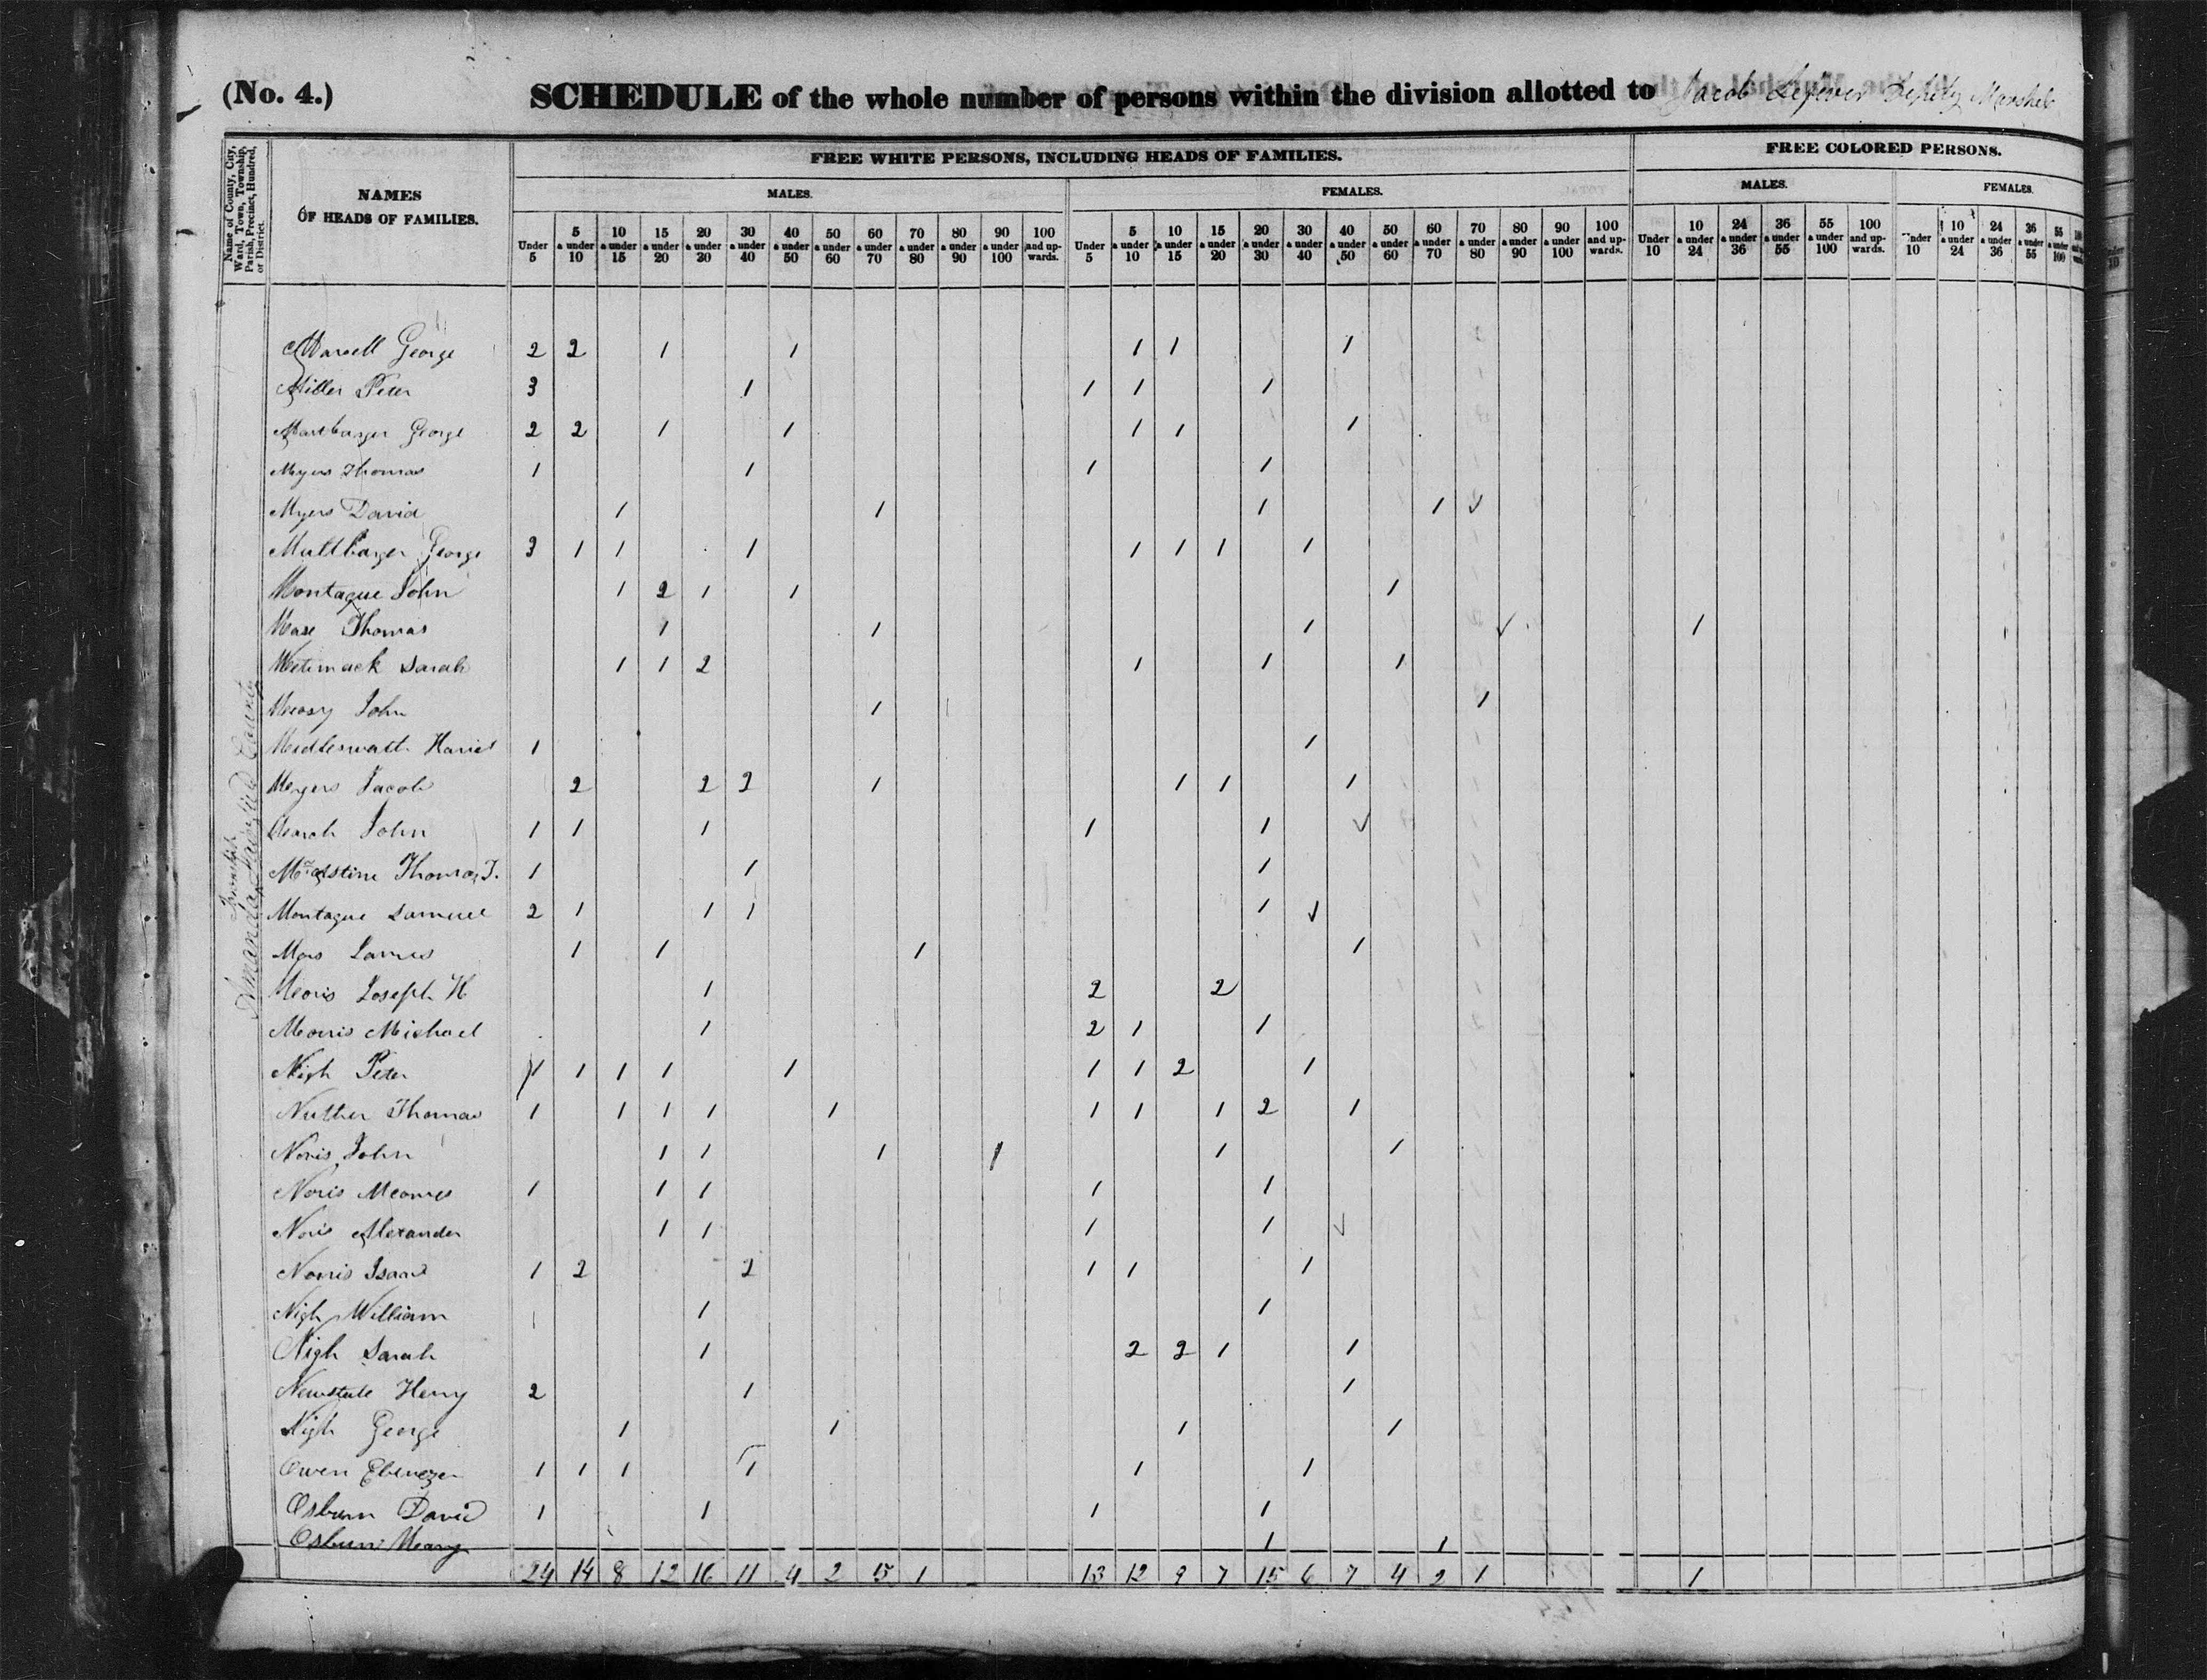 (No. 4.) SCHEDULE of the whole number of persons within the division allotted to Jacob Lefever Deputy Marshel
Name of County, City, Ward, Town, Township, Parish, Precinct, Hundred, or District.
NAMES OF HEADS OF FAMILIES.
FREE WHITE PERSONS, INCLUDING HEADS OF FAMILIES.
FREE COLORED PERSONS.
MALES. FEMALES. MALES. FEMALES.
Under 5 5 & under 10 10 & under 15 15 & under 20 20 & under 30 30 & under 40 40 & under 50 50 & under 60 60 & under 70 70 & under 80 80 & under 90 90 & under 100 100 and upwards. Under 5 5 & under 10 10 & under 15 15 & under 20 20 & under 30 30 & under 40 40 & under 50 50 & under 60 60 & under 70 70 & under 80 80 & under 90 90 & under 100 100 and upwards. Under 10 10 & under 24 24 & under 36 36 & under 55 55 & under 100 100 and upwards. Under 10 10 & under 24 24 & under 36 36 & under 55 55 & under 100
Amanda Township Fairfield County
George 2 2 1 1 1 1 1
Miller Peter 3 1 1 1 1
George 2 2 1 1 1 1 1
Myers Thomas 1 1 1 1
Myers David 1 1 1 1 √
Multbarger George 3 1 1 1 1 1 1 1
Montague John 1 2 1 1 1
Mase Thomas 1 1 1 √ 1
Sarah 1 1 2 1 1 1
John 1 1
Middleswath 1 1
Meyers Jacob 2 2 2 1 1 1 1
John 1 1 1 1 1 √
Thomas J. 1 1 1
Montague Samuel 2 1 1 1 1 √
James 1 1 1 1
Joseph H 1 2 2
Morris Michael 1 2 1 1
Nigh Peter 1 1 1 1 1 1 1 2 1
Nuther Thomas 1 1 1 1 1 1 1 1 2 1
Noris John 1 1 1 1 1 1
Noris 1 1 1 1 1
Noris Alexander 1 1 1 1 √
Norris Isaac 1 2 2 1 1 1
Nigh William 1 1 1
Nigh Sarah 1 2 2 1 1
Henry 2 1 1
Nigh George 1 1 1 1
Owen Ebenezer 1 1 1 1 1 1
Osburn David 1 1 1 1
Osburn Meary 1 1
24 14 8 12 16 11 4 2 5 1 13 12 9 7 15 6 7 4 2 1 1